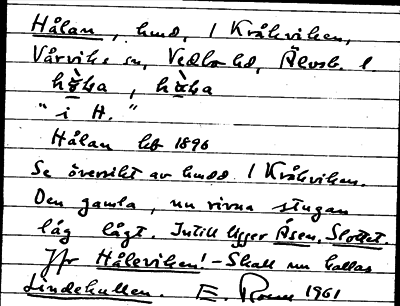 Hålan, hmd, i Kråkviken,
Vårviks sn, Vedbo hd, Älvsb. l.
"i H."
Hålan hf 1896
Se översikt av hmdd. i Kråkviken.
Den gamla, nu rivna stugan
låg lågt. Intill ligger Åsen, Slottet.
Jfr Håleviken! – Skall nu kallas
Lindekullen. E. 1961